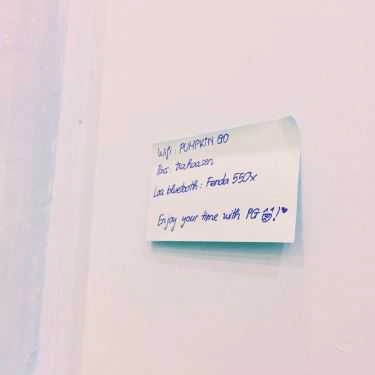 Wifi: PUMPKIN GO
Pass: trahoazen
Loa bluetooth: Fenda 550x
Enjoy your time with PG!